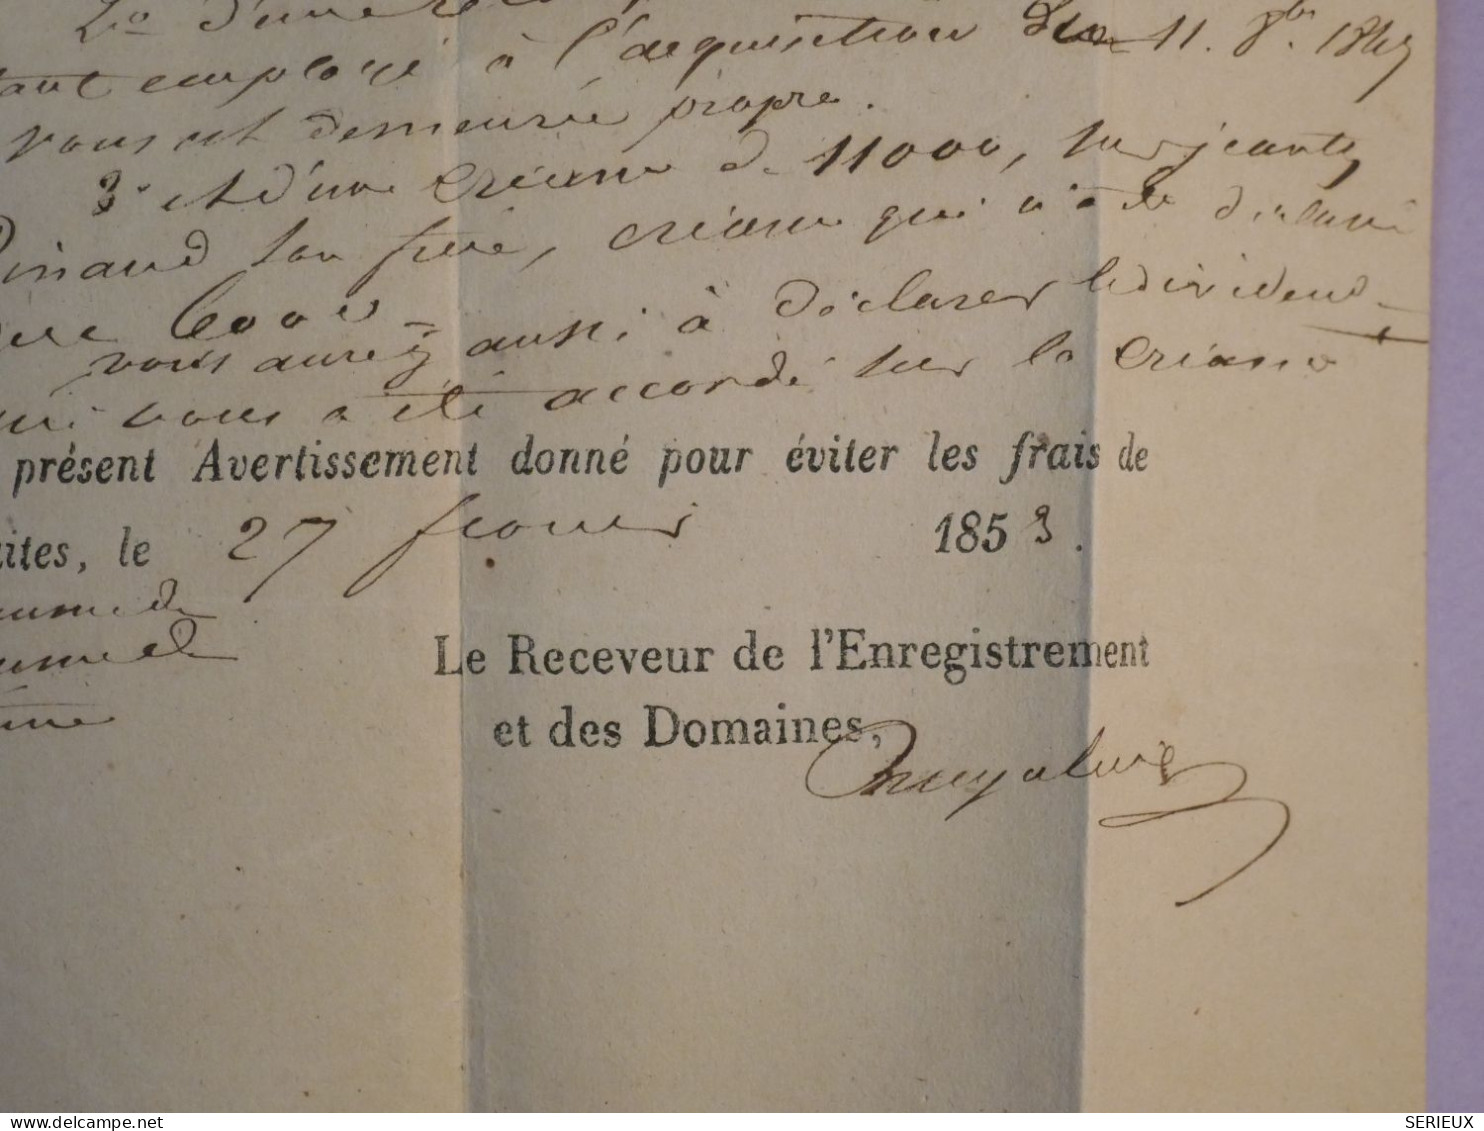 2o d'une
employé à l'acquisition du 11. 8bre 184
vous est demeurée propre.
3o et d'une créance de 11000, sur jeante
Pinaud son frère, créance qui n'a été déclarée
que 6000
vous aurez aussi à déclarer le dividende
qui vous a été accordé sur la créance
présent Avertissement donné pour éviter les frais de
ites, le 27 février 1853.
Le Receveur de l'Enregistrement
et des Domaines,
delcampe.net
SERIEUX